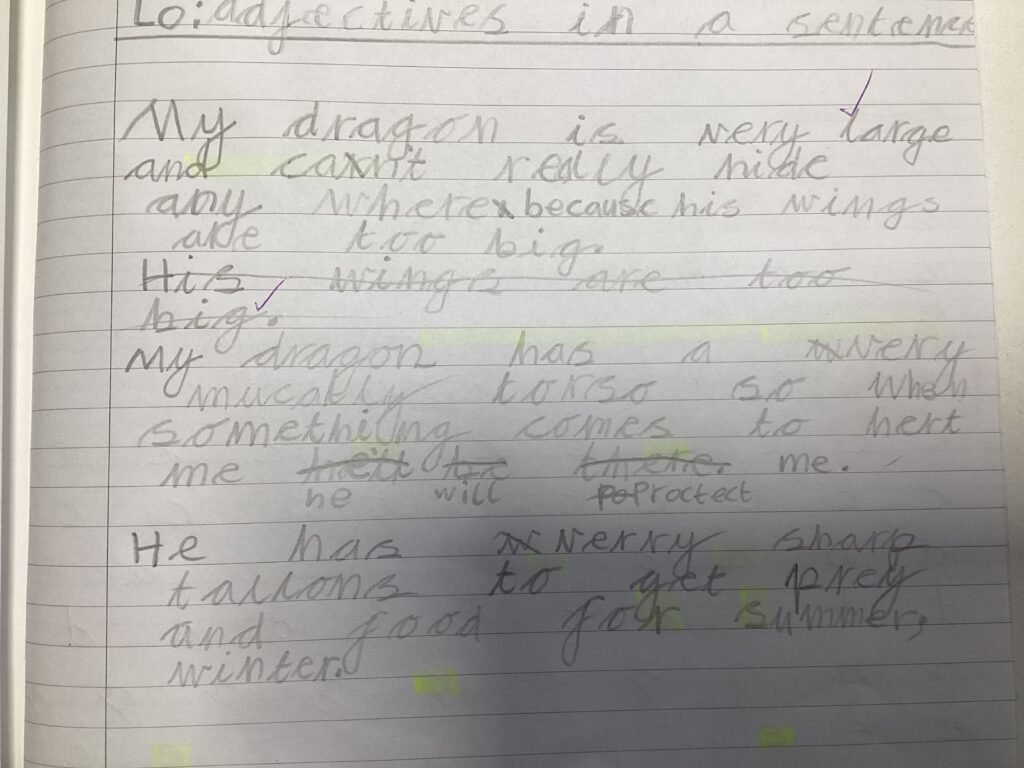 Lo: adjectives in a sentence
My dragon is very large
and can't really hide
any where because his wings
are too big.
His wings are too
big.
My dragon has a very
mucally torso so when
something comes to hert
me me.
he will Proctect
He has verry sharp
tallons to get prey
and food four summer,
winter.